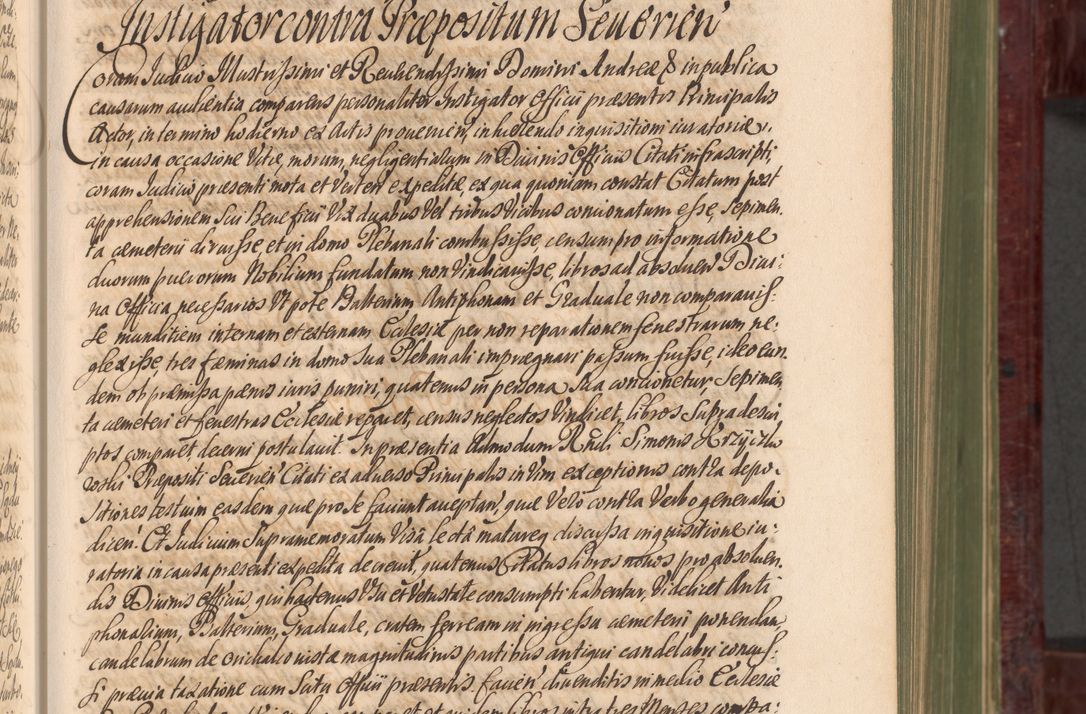 Instigator contra Præpositum Severien
Coram Iudicio Illustrissimi et Reverendissimi Domini Andreæ & in publica
causarum audientia comparens personaliter Instigator Officii præsentis Principalis
Actor, in termino hodierno ex Actis provenien, inhærendo inquisitioni iuratoriæ,
in causa occasione Vitæ, morum, negligentiarum in Divinis Officiis Citati infrascripti,
coram Iudicio præsenti mota et Verten expeditæ, ex qua quoniam constat Citatum post
apprehensionem Sui Beneficii Vix duabus Vel tribus Vicibus concionatum esse, Sepimen
ta cæmeterii diruisse, et in domo Plebanali combussisse, censum pro informatione
duorum puerorum Nobilium fundatum non Vindicavisse, libros ad absolven Divi:
na Officia necessarios Ut pote Psalterium Antiphonam et Graduale non comparavis:
se munditiem internam et externam Ecclesiæ per non reparationem fenestrarum ne:
glexisse tres fæminas in domo sua Plebanali imprægnari passum fuisse, ideo eun
dem ob præmissa pænis iuris puniri, quatenus in persona Sua concionetur Sepimen
ta cæmeteri et fenestras Ecclesiæ reparet, census neglectos Vindicet, libros Supra descri
ptos comparet decerni postulavit. In præsentia Admodum Rndi Simonis
Præpositi Severien Citati ex adverso Principalis in Vim exceptionis contra depo:
sitiones testium easdem quæ pro se faciunt acceptan, quæ Vero contra Verbo generali
dicen. Et Iudicium Supramemoratum Visa lecta matureq discussa inquisitione iu:
ratoria in causa præsenti expedita decrevit, quatenus Citatus libros novos pro absolven
dis Divinis Officiis, qui hactenus Usu et Vetustate consumpti habentur, Videlicet Anti
phonarium, Psalterium, Graduale, cratem ferream in ingressu cæmeterii ponendam
candelabrum de orichalco iusta magnitudinis partibus antiqui candelabri concus:
si prævia taxatione cum Scitu Officii præsentis. facien divenditis in medio Ecclesiæ
libros intra tres Menses compa: